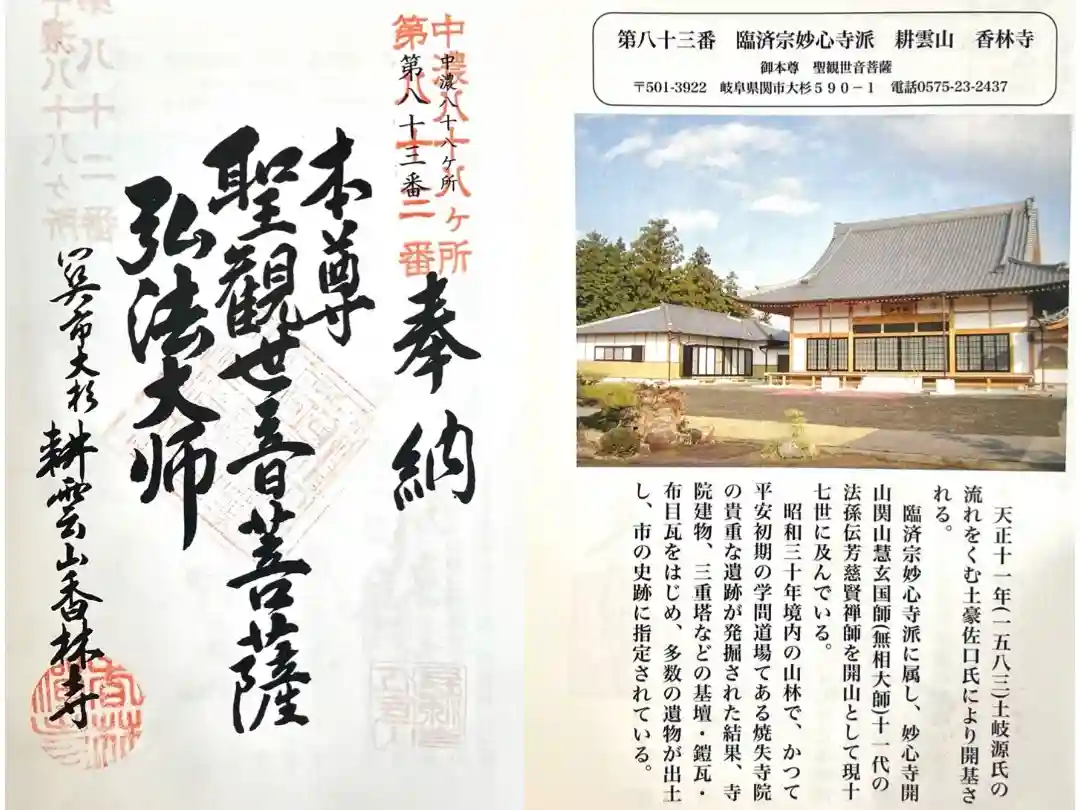 中濃八十八ヶ所
第八十二番
中濃八十八ヶ所
第八十三番
奉納
本尊
聖観世音菩薩
弘法大师
関市大杉
耕雲山香林寺
第八十三番　臨済宗妙心寺派　耕雲山　香林寺
御本尊　聖観世音菩薩
〒501-3922　岐阜県関市大杉５９０－１　電話0575-23-2437
天正十一年(一五八三)土岐源氏の
流れをくむ土豪佐口氏により開基さ
れる。
臨済宗妙心寺派に属し、妙心寺開
山関山慧玄国師(無相大師)十一代の
法孫伝芳慈賢禅師を開山として現十
七世に及んでいる。
昭和三十年境内の山林で、かつて
平安初期の学問道場である焼失寺院
の貴重な遺跡が発掘された結果、寺
院建物、三重塔などの基壇・鎧瓦・
布目瓦をはじめ、多数の遺物が出土
し、市の史跡に指定されている。